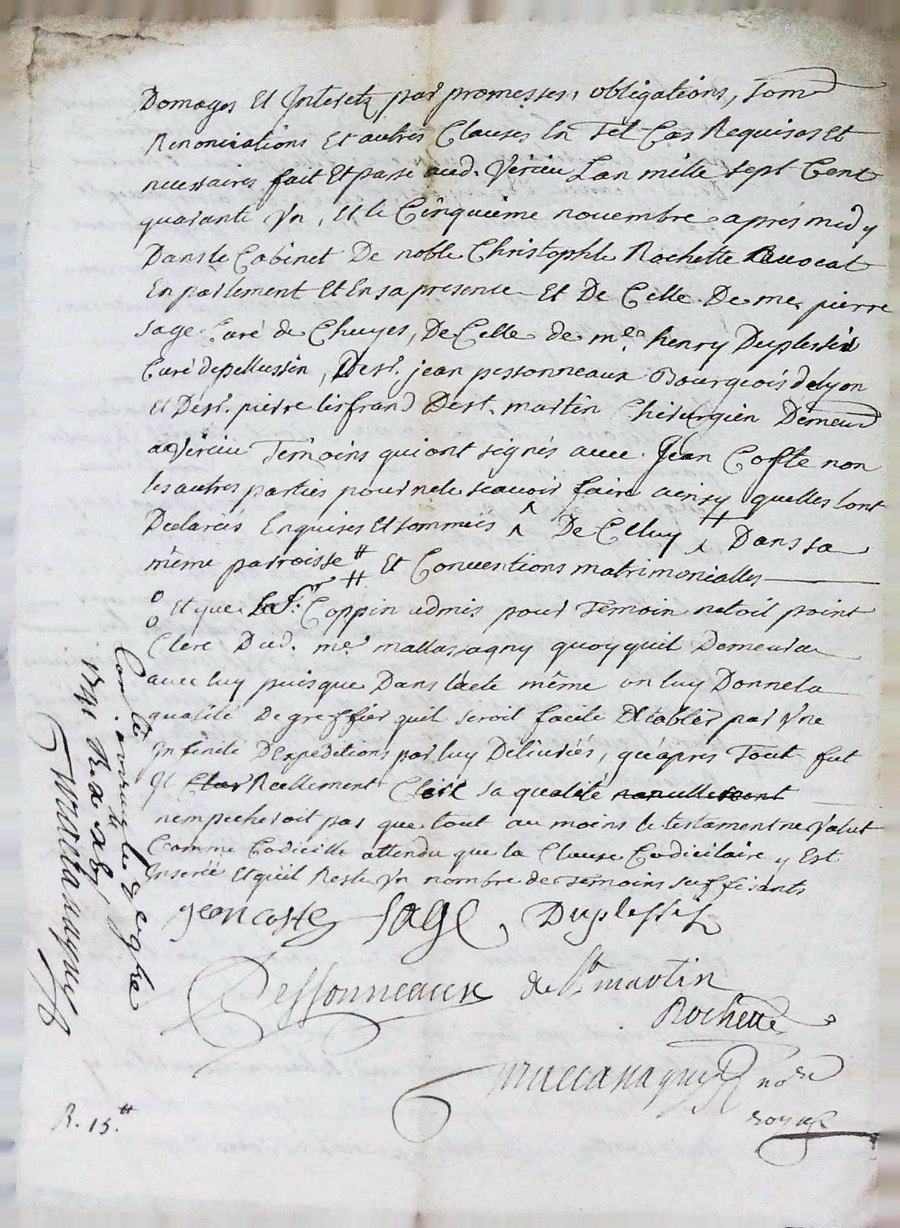 Domages Et Interetz par promesses, obligations, Som
Renonciations Et autres Clauses En Tel Cas Requises Et
necessaires fait Et passé aud. Vérieu Lan mille sept Cent
quarante Vn, Et le Cinquieme novembre aprés midy
Dans le Cabinet De noble Christophle Rochette Auocat
En parlement Et En sa presence Et De Celle De me. pierre
Sage Curé de Chuyes, De Celle de me. henry Duplessis
Curé de pellussin, De sr. jean pessonneaux Bourgeois de lyon
Et De sr. pierre lisfrand De st. martin Chirurgien Demeur
a Vérieu Temoins qui ont signés auec Jean Coste non
les autres parties pour ne le scauoir faire ainsy quelles lont
Declarées Enquises Et sommées ^ De Celuy ^ Dans sa
même parroisse # Et Conventions matrimonialles
Et que le Sr. Coppin admis pour Temoin netoit point
Clerc Dud. me. mallassagny quoyquil Demeura
auec luy puisque Dans lacte même on luy Donne la
qualité De greffier quil seroit facile Detablir par Vne
Infinité Dexpeditions par luy Deliurées, quaprés Tout fut
Il Reellement Clerc sa qualité
nempecheroit pas que tout au moins le testament ne Valut
Comme Codicille attendu que la Clause Codicilaire y Est
Inserée Et qu'il Reste Vn nombre de temoins suffisants
jean coste Sage Duplessis
Pessonneaux de St martin
Rochette
nore
royal
R. 15.#
1741